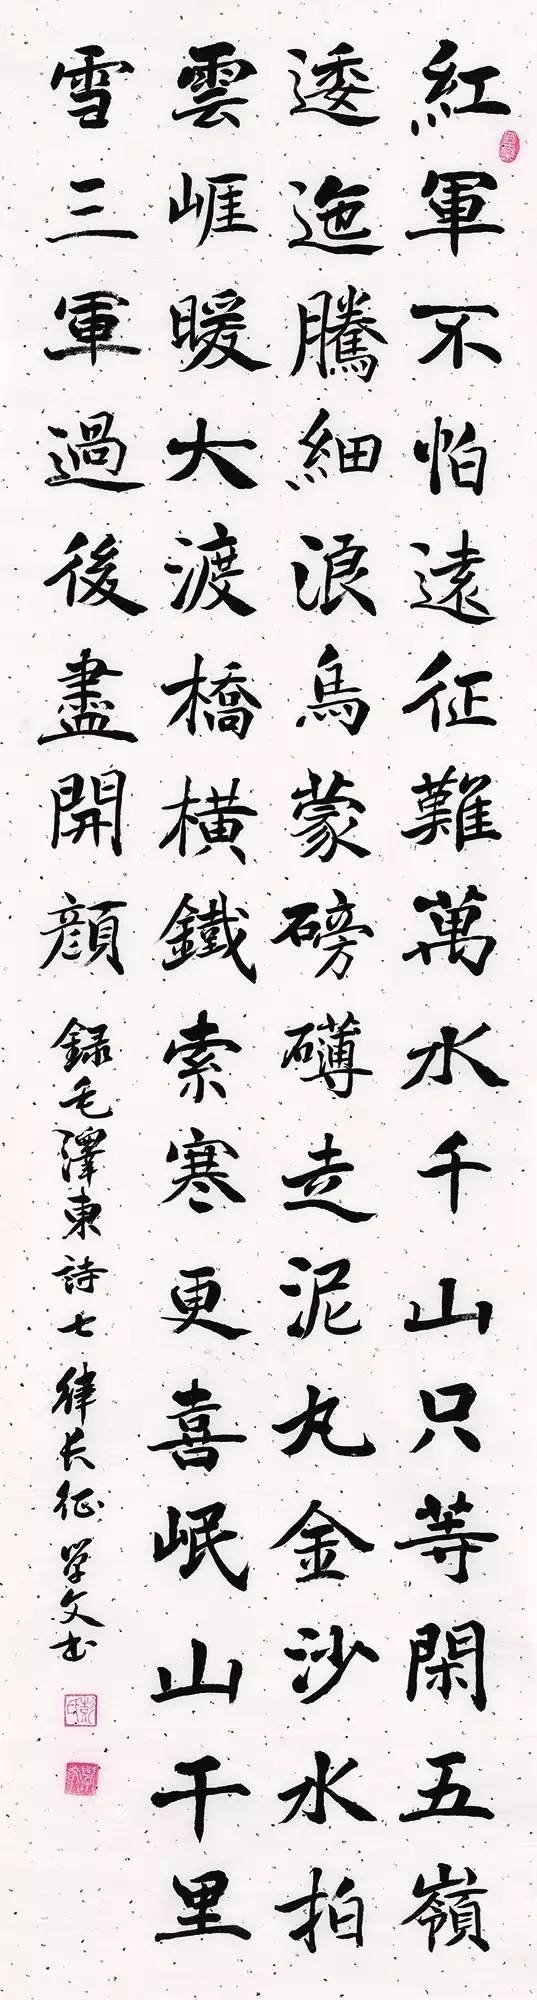 紅軍不怕遠征難萬水千山只等閑五嶺
逶迤騰細浪烏蒙磅礴走泥丸金沙水拍
雲崕暖大渡橋横鐵索寒更喜岷山千里
雪三軍過後盡開顔 録毛澤東詩七律长征 学文书